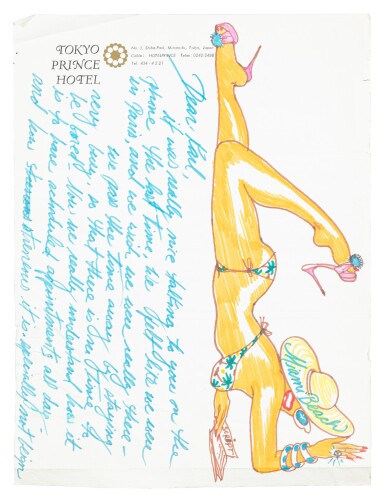 TOKYO
PRINCE
HOTEL
No. 3, Shiba-Park, Minatoku, Tokyo, Japan
Cable: HOTELPRINCE Telex:
Tel. 434 - 4221
Dear Pal,
it was really nice talking to you on the
phone the last time, felt like we were
in Paris, and we wish we were really there -
we pass the time away by staying
very busy, so that there is no time to
be bored - this, we all understand how it
is to have scheduled appointments all day -
and here it is especially
Miami Beach